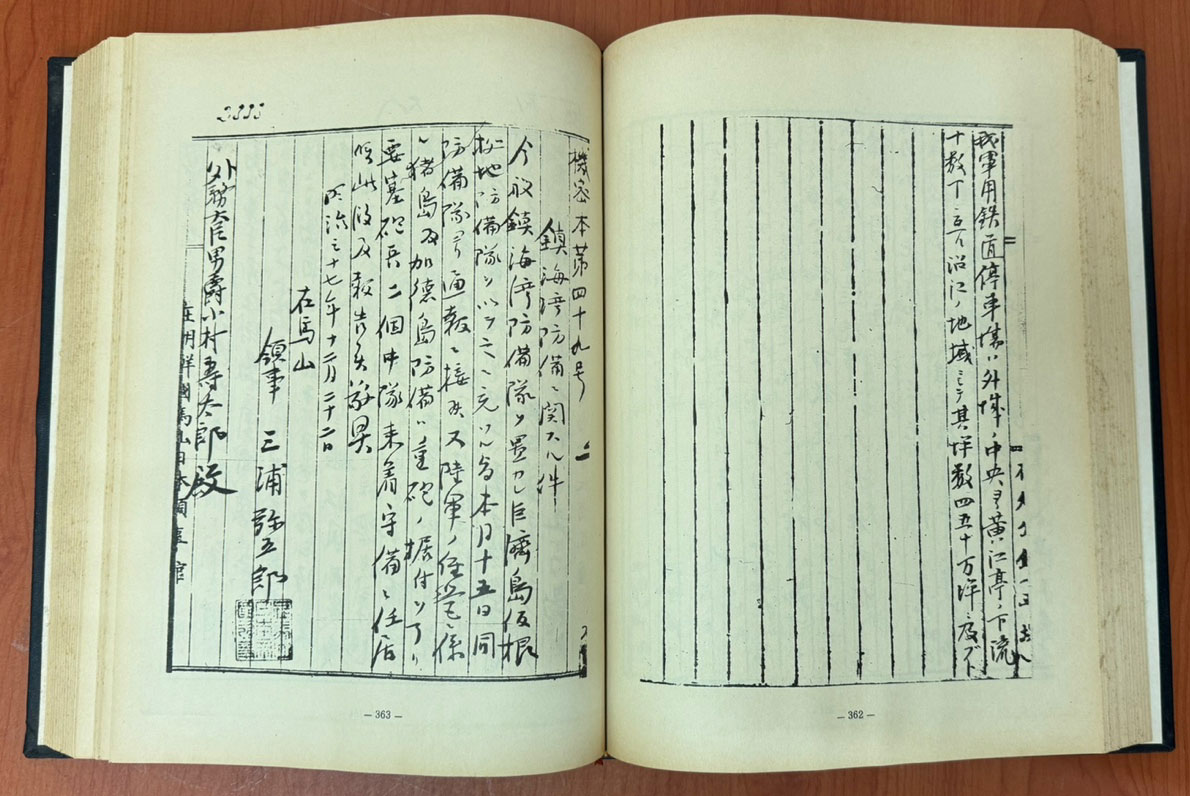 我軍用鉄道停車場ハ外城ノ中央ヨリ黄江亭ノ下流
十数丁ニ亘ル沿江ノ地域ニシテ其坪数四五十万坪ニ及ブト
— 362 —
機密本第四十九号
鎮海湾防備ニ関スル件
今般鎮海湾防備隊ヲ置カレ巨済島仮根
拠地防備隊ヲ以テ之ニ充ツル旨本月十五日同
防備隊ヨリ通報ニ接シ又陸軍ノ任営ニ係
ル猪島及加徳島防備ハ重砲ノ据付ヲ了リ
要塞砲兵二個中隊来着守備ニ任居
候此段及報告候敬具
明治三十七年十二月二十二日
在馬山
領事 三浦弥五郎
外務大臣男爵小村寿太郎殿
在朝鮮國馬山日本領事館
— 363 —